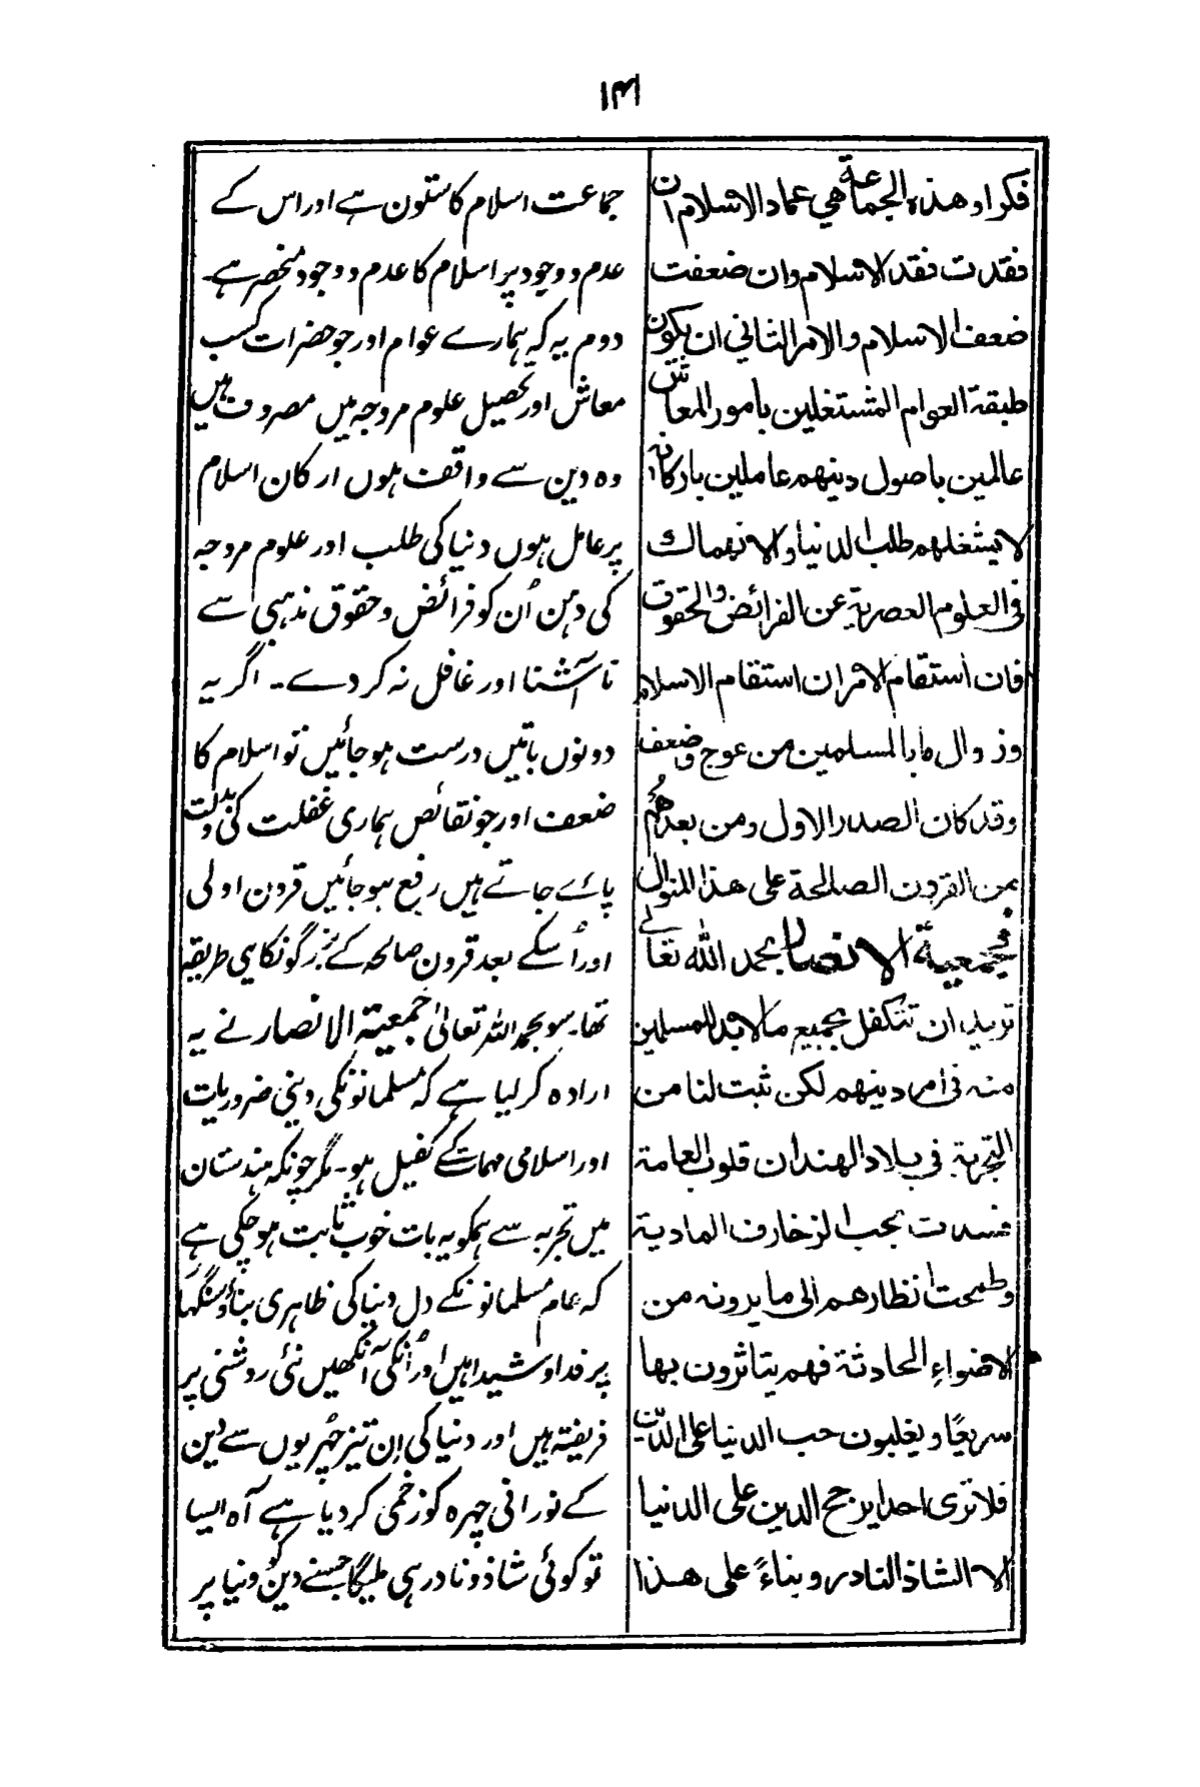 ۱۳۱
فکرا وهذه الجماعة هي عماد الاسلام ان
فقدت فقد الاسلام وان ضعفت
ضعف الاسلام والامر الثاني ان يكون
طبقة العوام المشتغلين بامور المعاش
عالمين باصول دينهم عاملين باركانه
لا يشغلهم طلب الدنيا والانهماك
فى العلوم العصرية عن الفرائض والحقوق
فان استقام الامران استقام الاسلام
وزوال ما بالمسلمين من عوج وضعف
وقد كان الصدر الاول ومن بعدهم
من القرون الصالحة على هذا المنوال
فجمعية الانصار بحمد الله تعالى
تريد ان تتكفل بجميع مالابد للمسلمين
منه فى امر دينهم لكن ثبت لنا من
التجربة فى بلاد الهند ان قلوب العامة
فسدت بحب الزخارف المادية
وطمحت انظارهم الى ما يرونه من
الاضواءِ الحادثة فهم يتاثرون بها
سريعًا ويغلبون حب الدنيا على الدّين
فلا ترى احدا يرجح الدين على الدنيا
الا الشاذ النادر وبناءً على هذا
جماعت اسلام کا ستون ہے اور اس کے
عدم و وجود پر اسلام کا عدم و وجود منحصر ہے۔
دوم یہ کہ ہمارے عوام اور جو حضرات کسب
معاش اور تحصیل علوم مروجہ میں مصروف ہیں
وہ دین سے واقف ہوں ارکان اسلام
پر عامل ہوں دنیا کی طلب اور علوم مروجہ
کی دہن اُن کو فرائض وحقوق مذہبی سے
نا آشنا اور غافل نہ کر دے۔ اگر یہ
دونوں باتیں درست ہو جائیں تو اسلام کا
ضعف اور جو نقائص ہماری غفلت کی بدولت
پائے جاتے ہیں رفع ہو جائیں قرون اولی
اور اُسکے بعد قرون صالحہ کے بزرگونکا یہی طریقہ
تھا۔ سو بحمد اللہ تعالیٰ جمعیۃ الانصار نے یہ
ارادہ کر لیا ہے کہ مسلمانونکی دینی ضروریات
اور اسلامی مہمات کے کفیل ہو۔ مگر چونکہ ہندستان
میں تجربہ سے ہمکو یہ بات خوب ثابت ہو چکی ہے
کہ عام مسلمانونکے دل دنیا کی ظاہری بناؤ سنگھار
پر فدا و شیدا ہیں اور اُنکی آنکھیں نئی روشنی پر
فریفتہ ہیں اور دنیا کی اِن تیز چُھریوں سے دین
کے نورانی چہرہ کو زخمی کر دیا ہے آہ ایسا
تو کوئی شاذ و نادر ہی ملیگا جسنے دین کو دنیا پر